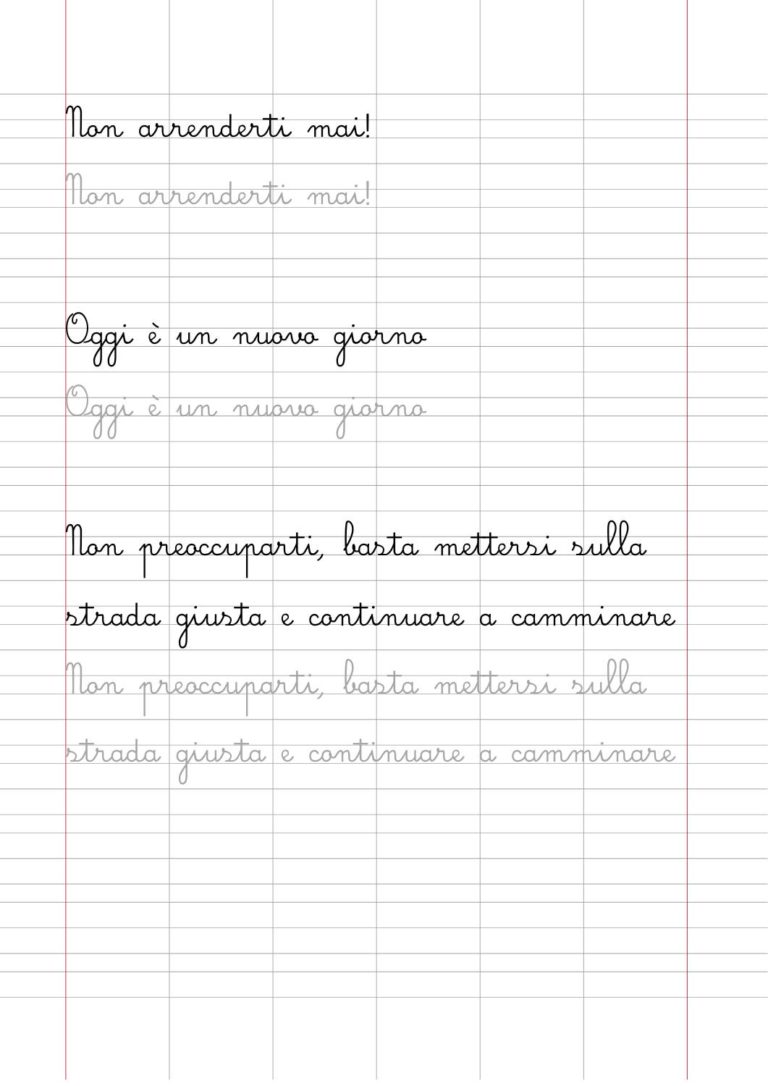 Non arrenderti mai!
Non arrenderti mai!
Oggi è un nuovo giorno
Oggi è un nuovo giorno
Non preoccuparti, basta mettersi sulla
strada giusta e continuare a camminare
Non preoccuparti, basta mettersi sulla
strada giusta e continuare a camminare